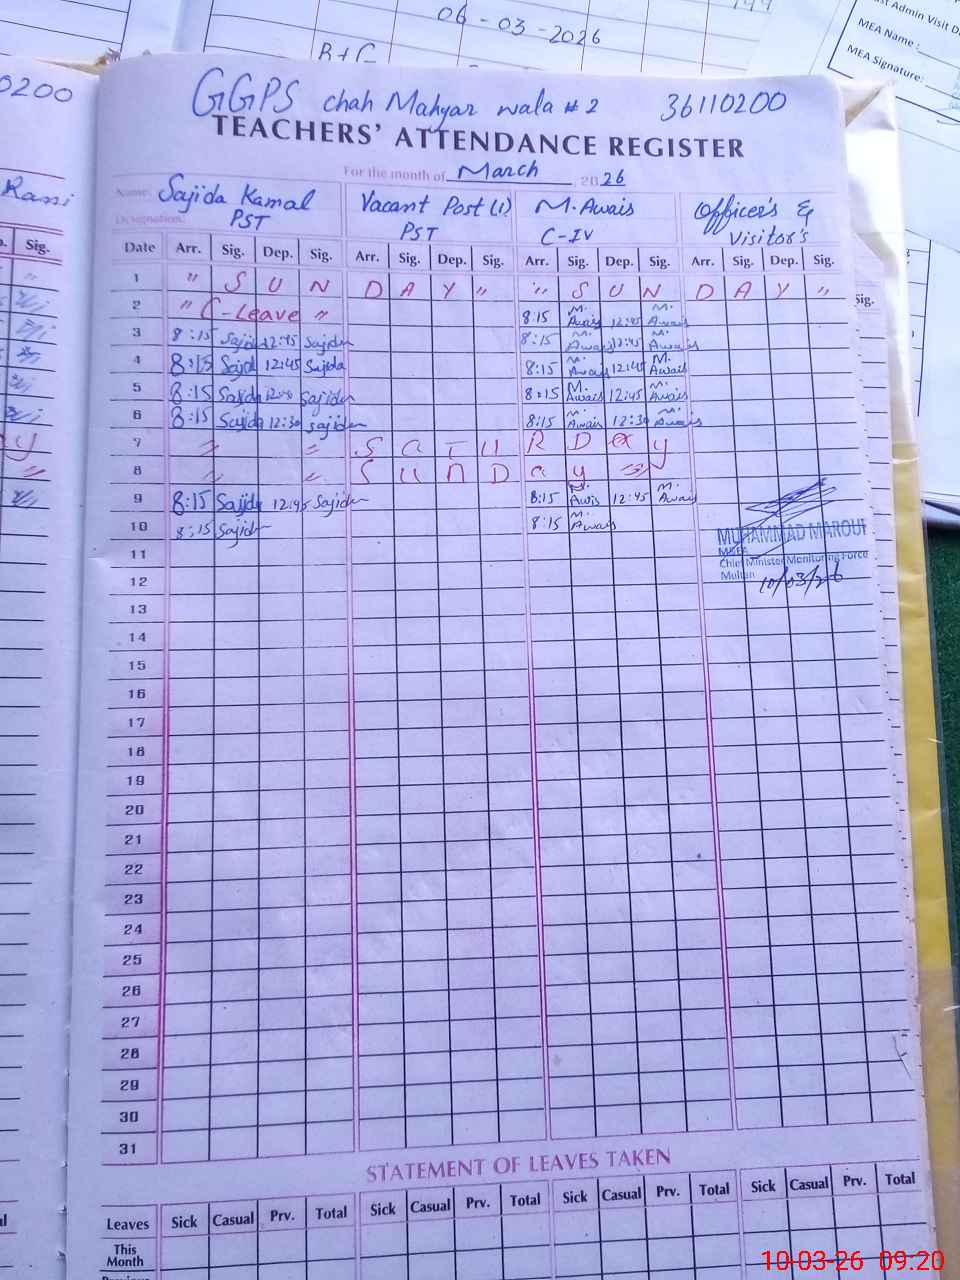 06-03-2026
B+C
Last Admin Visit D
MEA Name :
MEA Signature:
0200
GGPS chah Mahyar wala # 2 36110200
TEACHERS' ATTENDANCE REGISTER
For the month of March, 2026
Rani
Name: Sajida Kamal Vacant Post (1) M. Awais Officer's &
Designation: PST PST C-IV Visitor's
Sig.
Date Arr. Sig. Dep. Sig. Arr. Sig. Dep. Sig. Arr. Sig. Dep. Sig. Arr. Sig. Dep. Sig.
1 " S U N D A Y " " S U N D A Y "
2 " C-Leave " 8:15 M. Awais 12:45 M. Awais
3 8:15 Sajida 12:45 Sajida 8:15 M. Awais 12:45 M. Awais
4 8:15 Sajid 12:45 Sajida 8:15 M. Awais 12:45 M. Awais
5 8:15 Sajida Sajida 8:15 M. Awais 12:45 M. Awais
6 8:15 Sajida 12:30 Sajida 8:15 M. Awais 12:30 M. Awais
7 " " S A T U R D a y
8 " " S U N D a y "
9 8:15 Sajida 12:45 Sajida 8:15 M. Awis 12:45 M. Awais
10 8:15 Sajida 8:15 M. Awais
MUHAMMAD MAROUF
MEA
Chief Minister Monitoring Force
Multan
10/03/26
11
12
13
14
15
16
17
18
19
20
21
22
23
24
25
26
27
28
29
30
31
STATEMENT OF LEAVES TAKEN
Leaves Sick Casual Prv. Total Sick Casual Prv. Total Sick Casual Prv. Total Sick Casual Prv. Total
This
Month
10-03-26 09:20